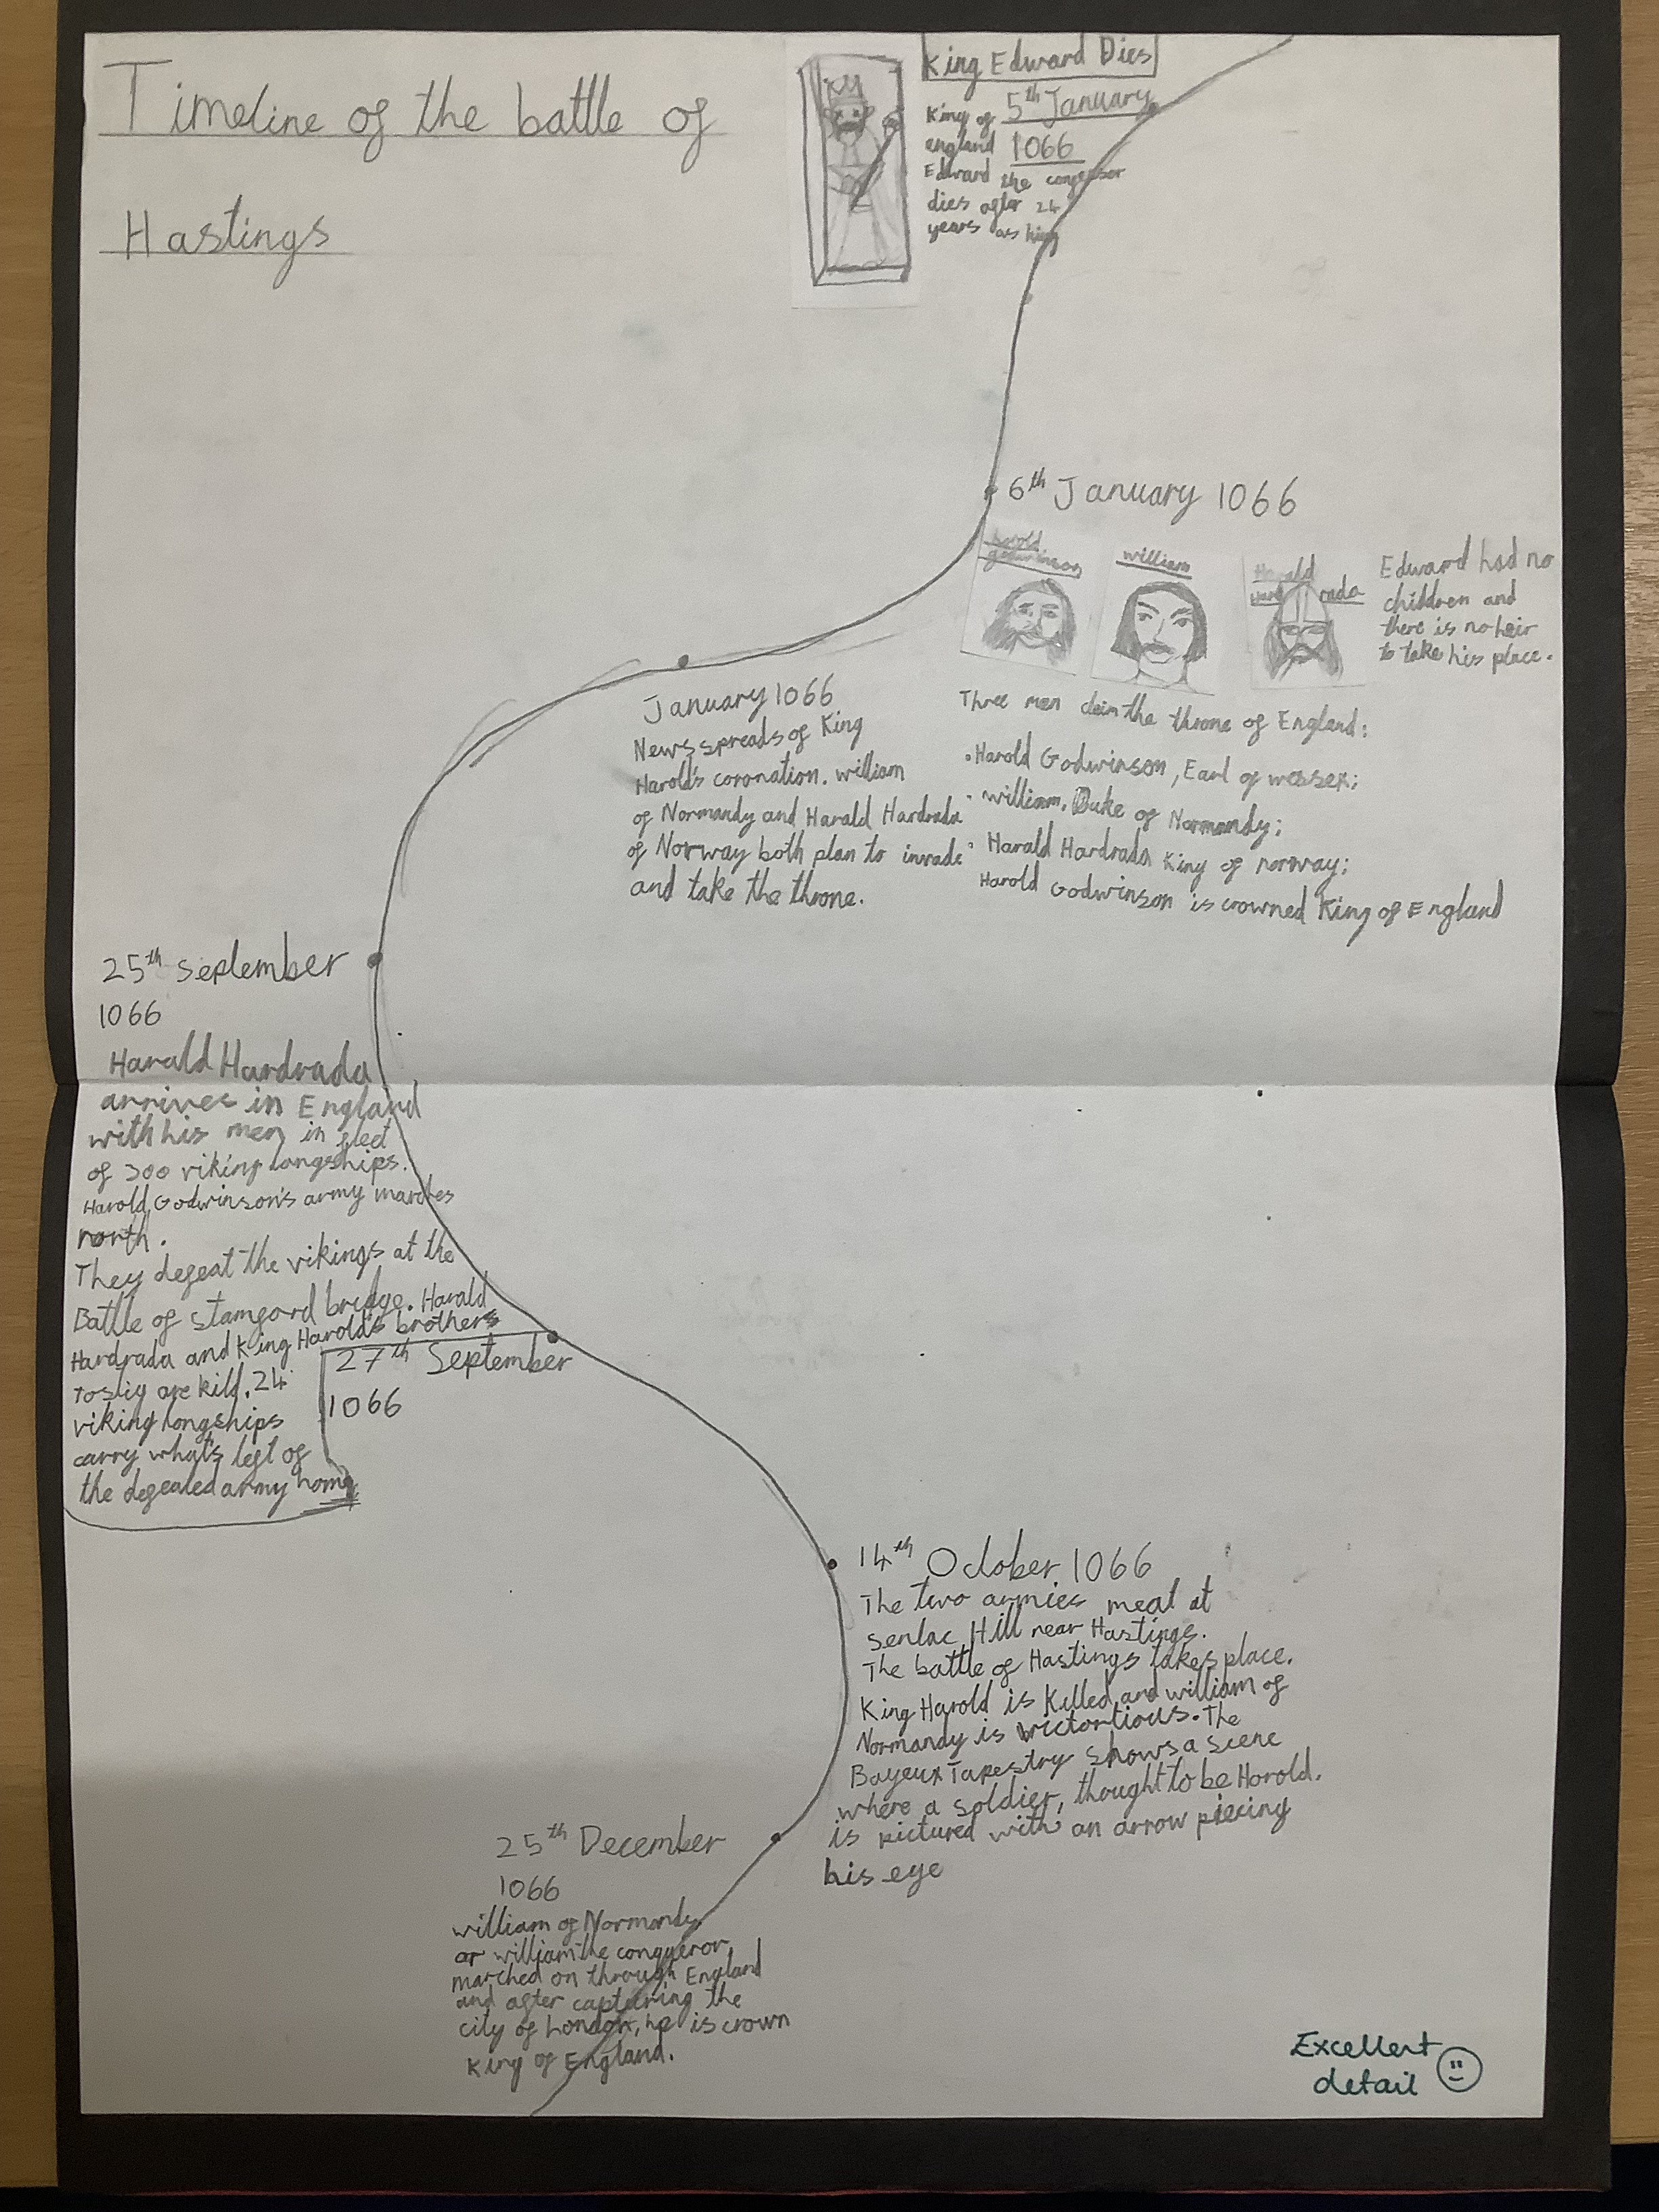 Timeline of the battle of
Hastings
King Edward Dies
5th January
1066
King of
england
Edward the confessor
dies after 24
years as king
6th January 1066
harold
godwinson
william
Harald
Hardrada
Edward had no
children and
there is no heir
to take his place.
Three men claim the throne of England:
• Harold Godwinson, Earl of wessex;
• william, Duke of Normandy;
• Harald Hardrada King of norway;
Harold Godwinson is crowned King of England
January 1066
News spreads of King
Harold's coronation. william
of Normandy and Harald Hardrada
of Norway both plan to invade
and take the throne.
25th september
1066
Harald Hardrada
arrives in England
with his men in fleet
of 300 viking longships.
Harold Godwinson's army marches
north.
They defeat the vikings at the
Battle of stamford bridge. Harald
Hardrada and King Harold's brothers
Tostig are kild. 24
viking longships
carry what's left of
the defeated army home
27th September
1066
14th October 1066
The two armies meat at
senlac Hill near Hastings.
The battle of Hastings takes place.
King Harold is killed and william of
Normandy is victortious. The
Bayeux Tapestry shows a scene
where a soldier, thought to be Harold.
is pictured with an arrow piecing
his eye
25th December
1066
william of Normandy
or william the conqueror
marched on through England
and after capturing the
city of London, he is crown
King of England.
Excellent
detail